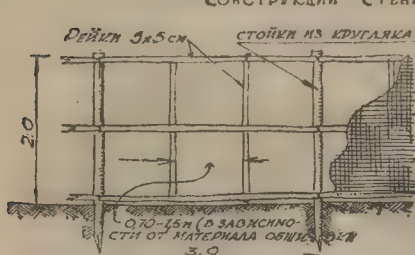 КОНСТРУКЦИИ СТЕН
РЕЙКИ 5x5 см
СТОЙКИ ИЗ КРУГЛЯКА
2.0
0,70-1,5м (В ЗАВИСИМО-
СТИ ОТ МАТЕРИАЛА ОБШИВКИ
3.0